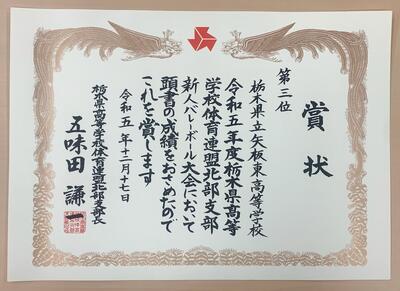 賞状
第三位
栃木県立矢板東高等学校
令和五年度栃木県高等
学校体育連盟北部支部
新人バレーボール大会において
頭書の成績をおさめたので
これを賞します
令和五年十二月十七日
栃木県高等学校体育連盟北部支部長
五味田謙一